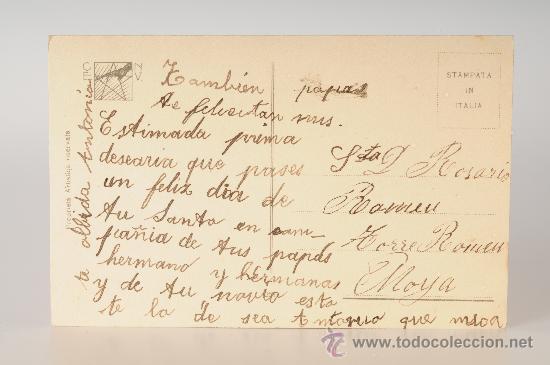 También papas
te felicitan mis.
Estimada prima
desearia que pases
un feliz dia de
tu Santo en com-
pañia de tus papás
hermano y hermanas
y de tu novio esta
te lo de sea Antonia que
te olbida Antonia
Sta D. Rosario
Romeu
Torre Romeu
Moya
STAMPATA
IN
ITALIA
Proprieta Artistica riservata
todocoleccion.net